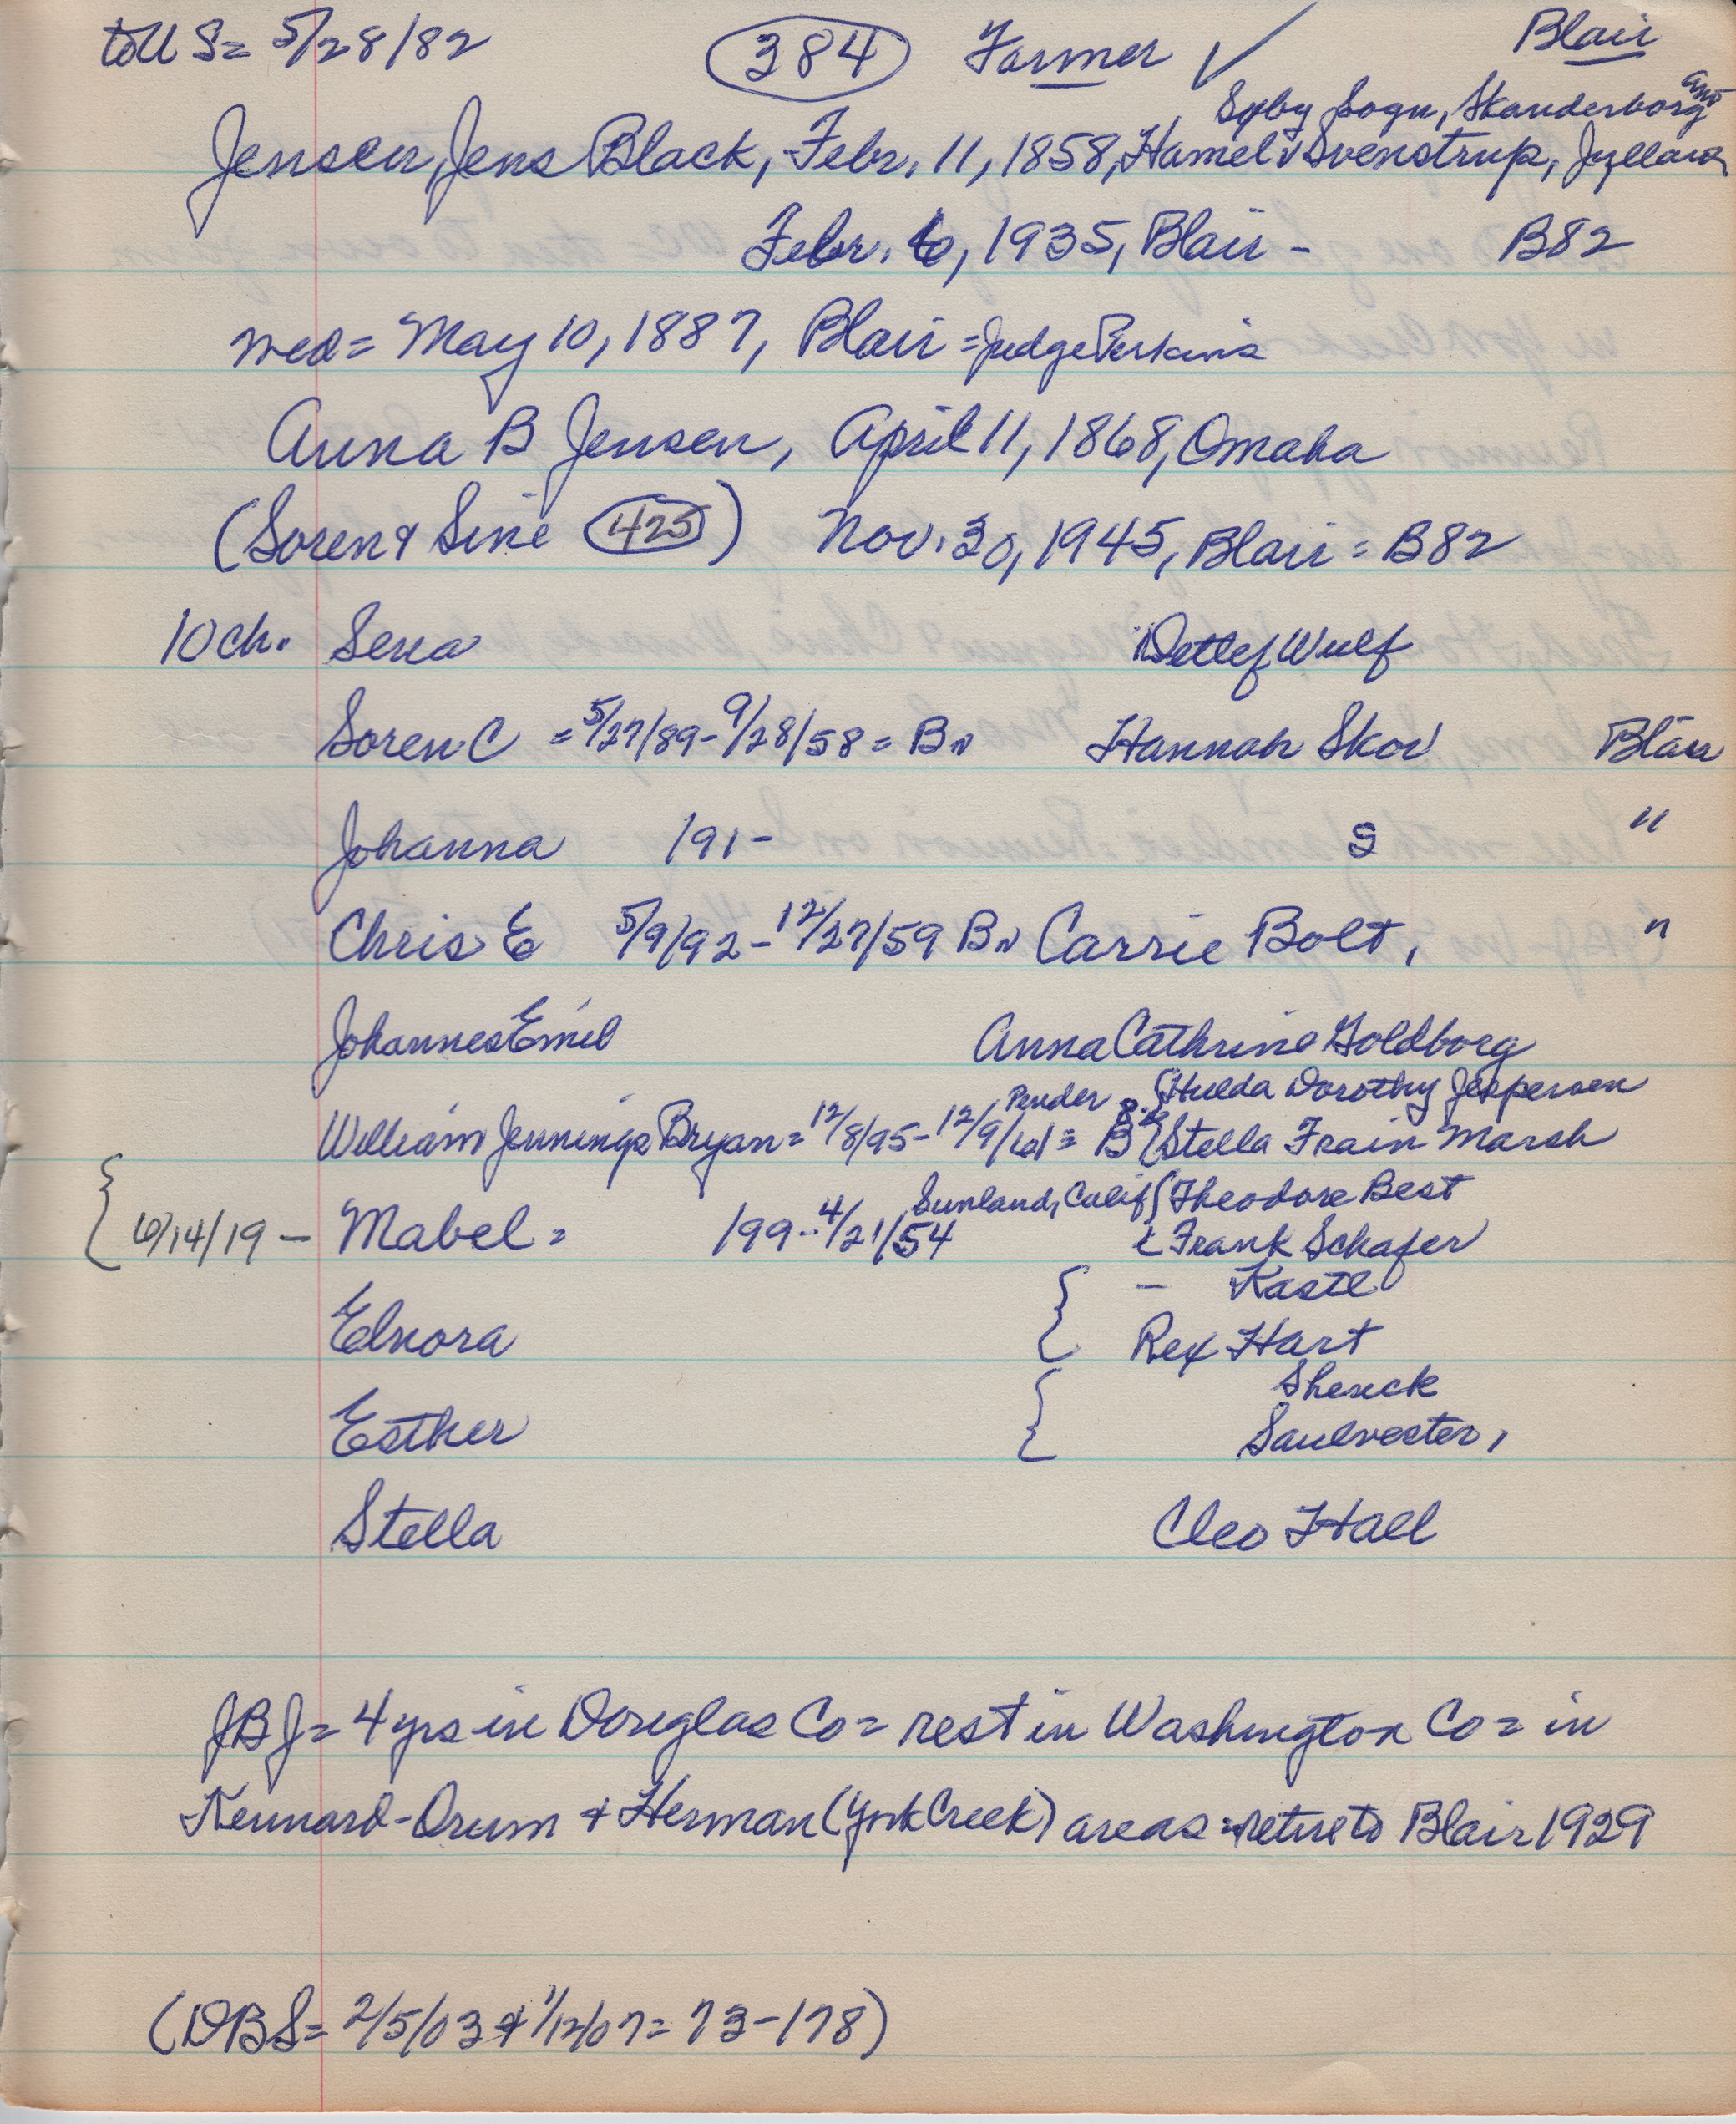 to U S= 5/28/82 (384) Farmer ✓ Blair
Sogn, Skanderborg Amt
Jensen, Jens Black, Febr. 11, 1858, Hamel v Svenstrup, Jylland
Febr. 6, 1935, Blair - B82
wed= May 10, 1887, Blair = Judge Perkins
Anna B Jensen, April 11, 1868, Omaha
(Soren & Sine (425)) Nov. 30, 1945, Blair = B82
10 ch. Sena Detlef Wulf
Soren C = 5/27/89-9/28/58 = Bn Hannah Skov Blair
Johanna 191- S "
Chris E 5/9/92-12/27/59 Bn Carrie Bolt, "
Johannes Emil Anna Cathrine Goldborg
Pender { Hulda Dorothy Jeppersen
William Jennings Bryan = 12/8/95-12/9/61 = B { Stella Train Marsh
Sunland, Calif { Theodore Best
{ 6/14/19 - Mabel = 199--4/21/54 { Frank Schafer
{ - Kastl
Elnora Rex Hart
{ Shenck
Esther Saulvester,
Stella Cleo Hall
JBJ= 4 yrs in Douglas Co = rest in Washington Co = in
Kennard-Orum & Herman (York Creek) areas = retire to Blair 1929
(DBS= 2/5/03 & 1/12/07 = 73-178)